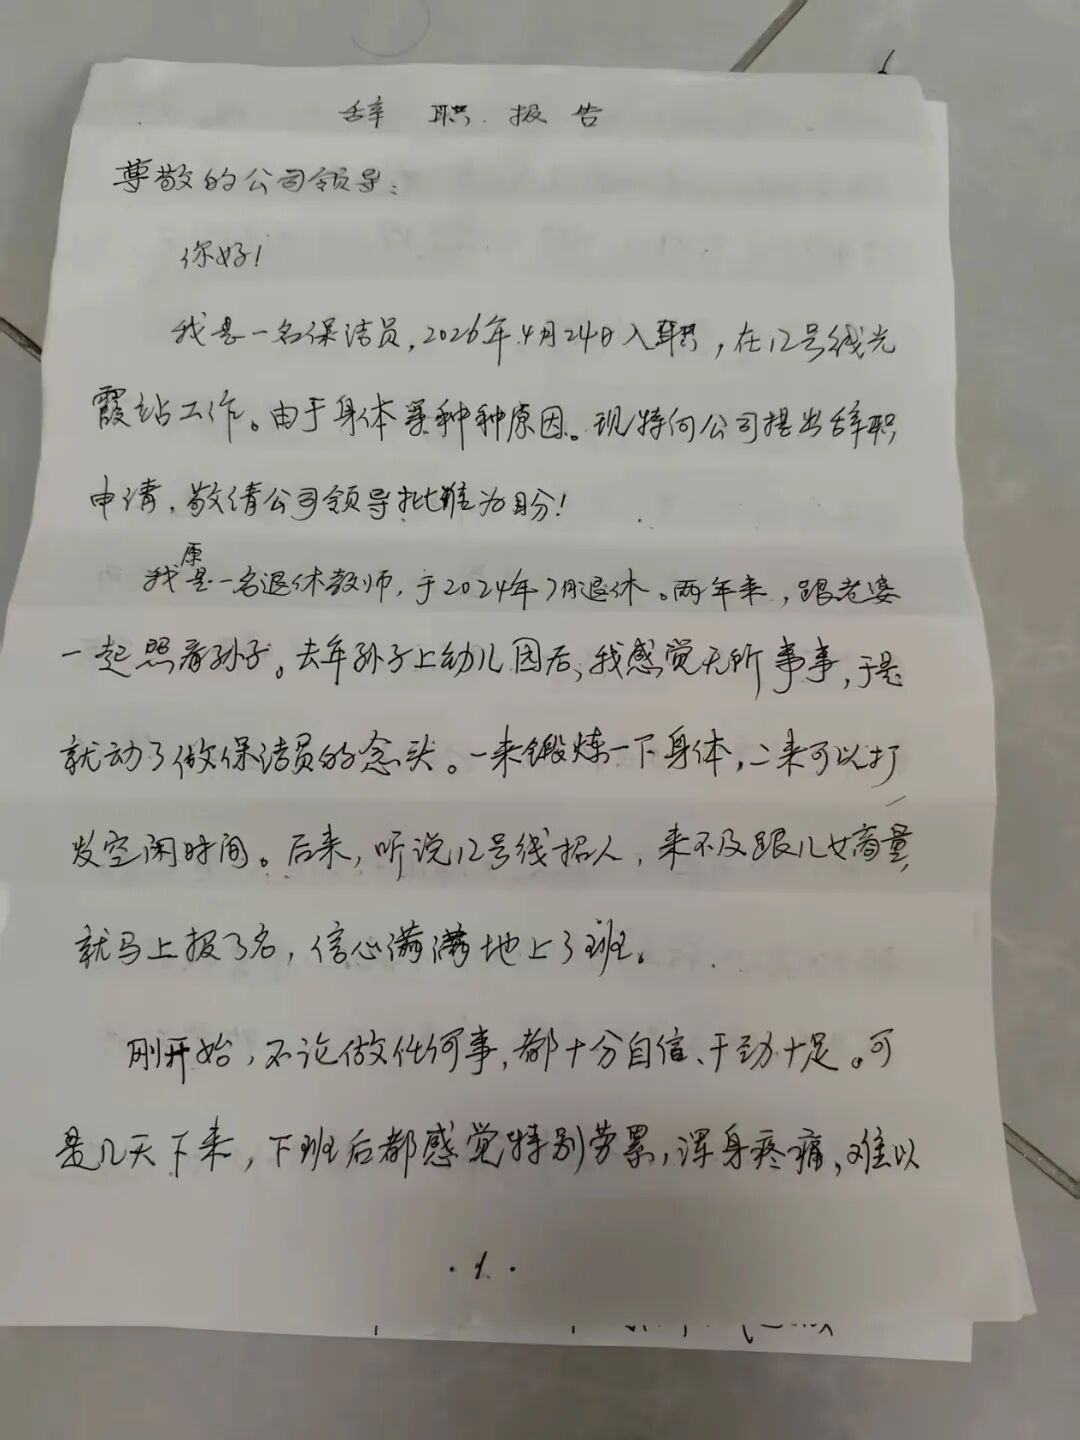 辞职报告
尊敬的公司领导：
你好！
我是一名保洁员，2026年4月24日入职，在12号线光
霞站工作。由于身体等种种原因。现特向公司提出辞职
申请，敬请公司领导批准为盼！
我原是一名退休教师，于2024年7月退休。两年来，跟老婆
一起照看孙子。去年孙子上幼儿园后，我感觉无所事事，于是
就动了做保洁员的念头。一来锻炼一下身体，二来可以打
发空闲时间。后来，听说12号线招人，来不及跟儿女商量，
就马上报了名，信心满满地上了班。
刚开始，不论做任何事，都十分自信、干劲十足。可
是几天下来，下班后都感觉特别劳累，浑身疼痛，难以
·1·